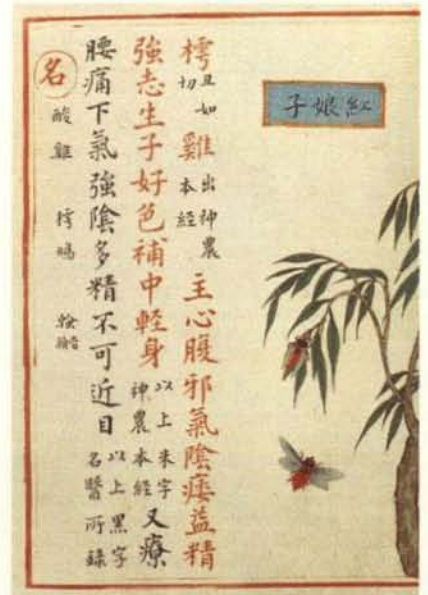 紅娘子
樗丑如切雞出神農本經主心腹邪氣陰痿益精
強志生子好色補中輕身以上朱字神農本經又療
腰痛下氣強陰多精不可近目以上黑字名醫所錄
名 酸雞 樗鳩